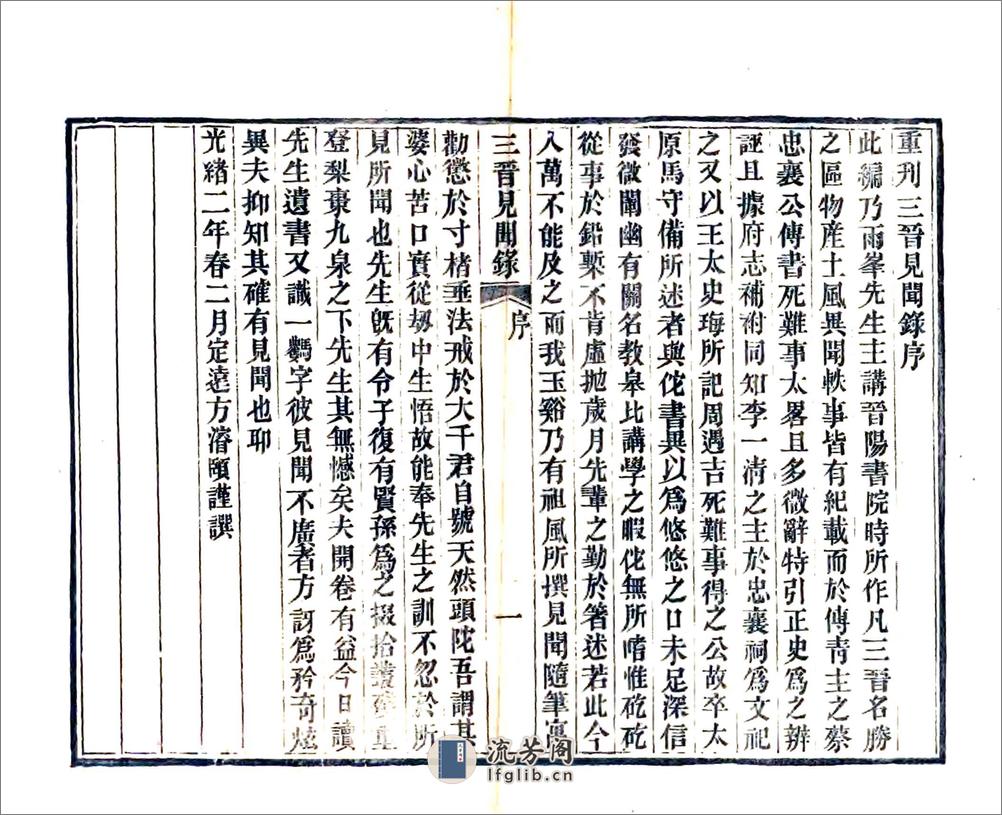 重刊三晉見聞錄序
此編乃雨峯先生主講晉陽書院時所作凡三晉名勝
之區物產土風異聞軼事皆有紀載而於傳青主之蔡
忠襄公傳書死難事太畧且多微辭特引正史爲之辨
誣且據府志補祔同知李一淸之主於忠襄祠爲文祀
之又以王太史珻所記周遇吉死難事得之公故卒太
原馬守備所述者與佗書異以爲悠悠之口未足深信
發微闡幽有關名教皋比講學之暇佗無所嗜惟矻矻
從事於鉛槧不肯虛拋歲月先輩之勤於箸述若此今
人萬不能及之而我玉谿乃有祖風所撰見聞隨筆寓
三晉見聞錄 序 一
勸懲於寸楮垂法戒於大千君自號天然頭陀吾謂其
婆心苦口實從刼中生悟故能奉先生之訓不忽於所
見所聞也先生旣有令子復有賢孫爲之掇拾叢殘重
登梨棗九泉之下先生其無憾矣夫開卷有益今日讀
先生遺書又識一鷌字彼見聞不廣者方訝爲矜奇炫
異夫抑知其確有見聞也耶
光緒二年春二月定遠方濬頤謹譔
流芳阁
lfglib.cn